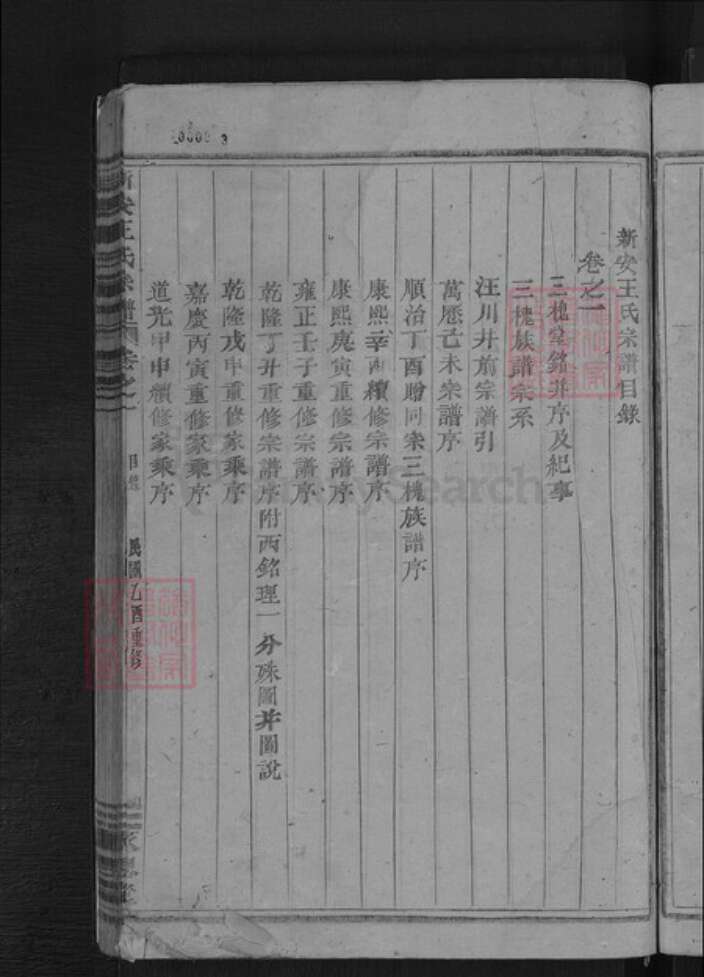 新安王氏宗譜目錄
卷之一
三槐堂銘并序及紀事
三槐族譜宗系
汪川井前宗譜引
萬厯己未宗譜序
順治丁酉贈同宗三槐族譜序
康熙辛酉續修宗譜序
康熙庚寅重修宗譜序
雍正壬子重修宗譜序
乾隆丁丑重修宗譜序附西銘理一分殊圖并圖說
乾隆戊申重修家乘序
嘉慶丙寅重修家乘序
道光甲申續修家乘序
新安王氏宗譜 卷之一 目錄 民國乙酉重修